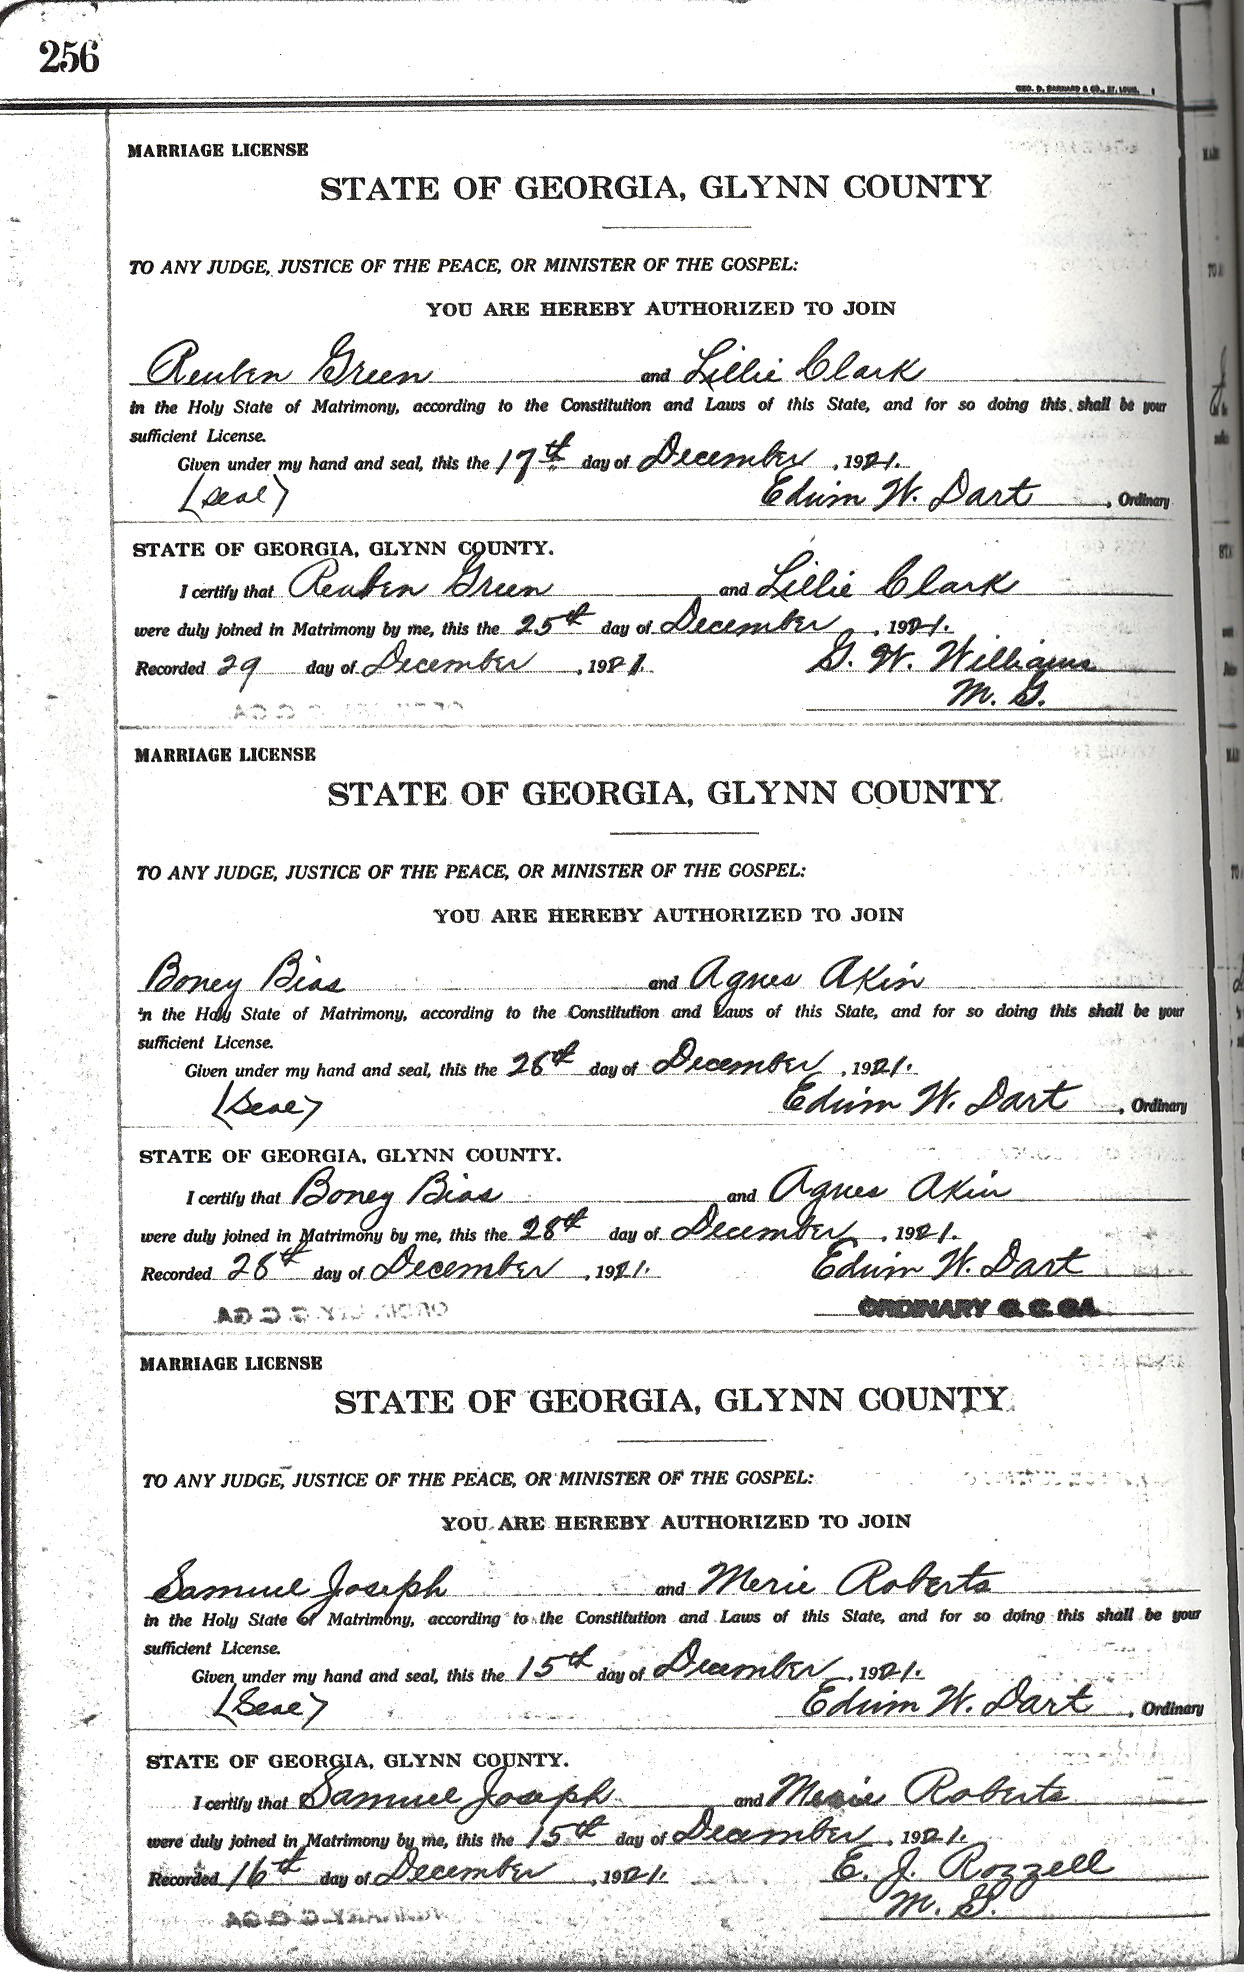 256
GEO. D. BARNARD & CO., ST. LOUIS.
MARRIAGE LICENSE
STATE OF GEORGIA, GLYNN COUNTY
TO ANY JUDGE, JUSTICE OF THE PEACE, OR MINISTER OF THE GOSPEL:
YOU ARE HEREBY AUTHORIZED TO JOIN
Reuben Green and Lillie Clark
in the Holy State of Matrimony, according to the Constitution and Laws of this State, and for so doing this shall be your
sufficient License.
Given under my hand and seal, this the 17th day of December, 1921.
(Seal) Edwin W. Dart, Ordinary
STATE OF GEORGIA, GLYNN COUNTY.
I certify that Reuben Green and Lillie Clark
were duly joined in Matrimony by me, this the 25th day of December, 1921.
Recorded 29 day of December, 1921. G. W. Williams
M. G.
MARRIAGE LICENSE
STATE OF GEORGIA, GLYNN COUNTY
TO ANY JUDGE, JUSTICE OF THE PEACE, OR MINISTER OF THE GOSPEL:
YOU ARE HEREBY AUTHORIZED TO JOIN
Boney Bias and Agnes Akin
in the Holy State of Matrimony, according to the Constitution and Laws of this State, and for so doing this shall be your
sufficient License.
Given under my hand and seal, this the 28th day of December, 1921.
(Seal) Edwin W. Dart, Ordinary
STATE OF GEORGIA, GLYNN COUNTY.
I certify that Boney Bias and Agnes Akin
were duly joined in Matrimony by me, this the 28th day of December, 1921.
Recorded 28th day of December, 1921. Edwin W. Dart
ORDINARY G. C. GA.
MARRIAGE LICENSE
STATE OF GEORGIA, GLYNN COUNTY
TO ANY JUDGE, JUSTICE OF THE PEACE, OR MINISTER OF THE GOSPEL:
YOU ARE HEREBY AUTHORIZED TO JOIN
Samuel Joseph and Merie Roberts
in the Holy State of Matrimony, according to the Constitution and Laws of this State, and for so doing this shall be your
sufficient License.
Given under my hand and seal, this the 15th day of December, 1921.
(Seal) Edwin W. Dart, Ordinary
STATE OF GEORGIA, GLYNN COUNTY.
I certify that Samuel Joseph and Merie Roberts
were duly joined in Matrimony by me, this the 15th day of December, 1921.
Recorded 16th day of December, 1921. E. J. Rozzell
M. G.